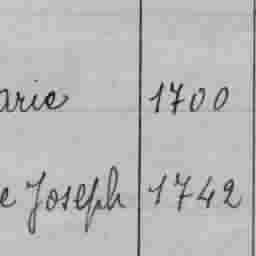 arie 1700
e Joseph 1742